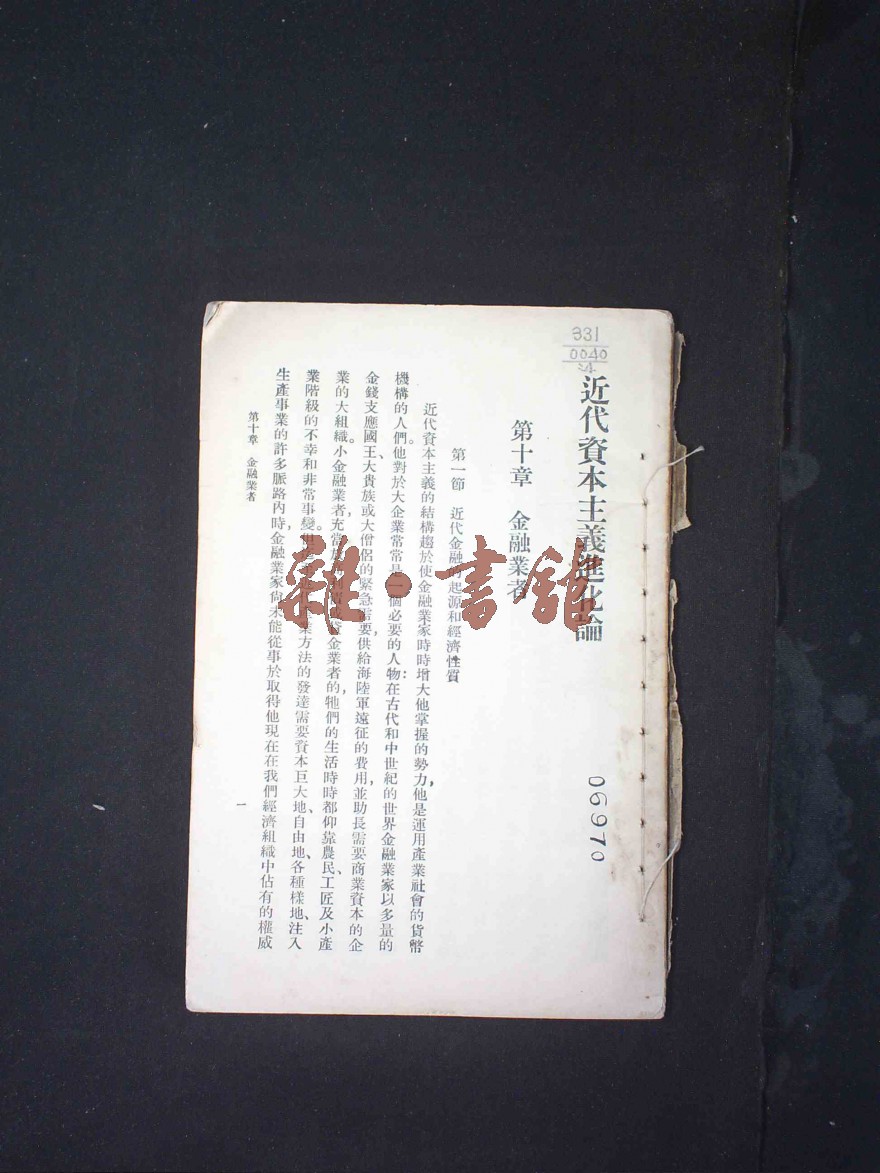 331
0040
近代資本主義進化論
第十章 金融業者
第一節 近代金融的起源和經濟性質
近代資本主義的結構趨於使金融業家時時增大他掌握的勢力，他是運用產業社會的貨幣
機構的人們。他對於大企業常常是一個必要的人物：在古代和中世紀的世界金融業家以多量的
金錢支應國王、大貴族或大僧侶的緊急需要，供給海陸軍遠征的費用，並助長需要商業資本的企
業的大組織。小金融業者，充當金業者的，牠們的生活時時都仰靠農民、工匠及小產
業階級的不幸和非常事變。業方法的發達需要資本巨大地、自由地、各種樣地、注入
生產事業的許多脈路內時，金融業家尙未能從事於取得他現在在我們經濟組織中佔有的權威
第十章 金融業者
一
06970
雜·書館